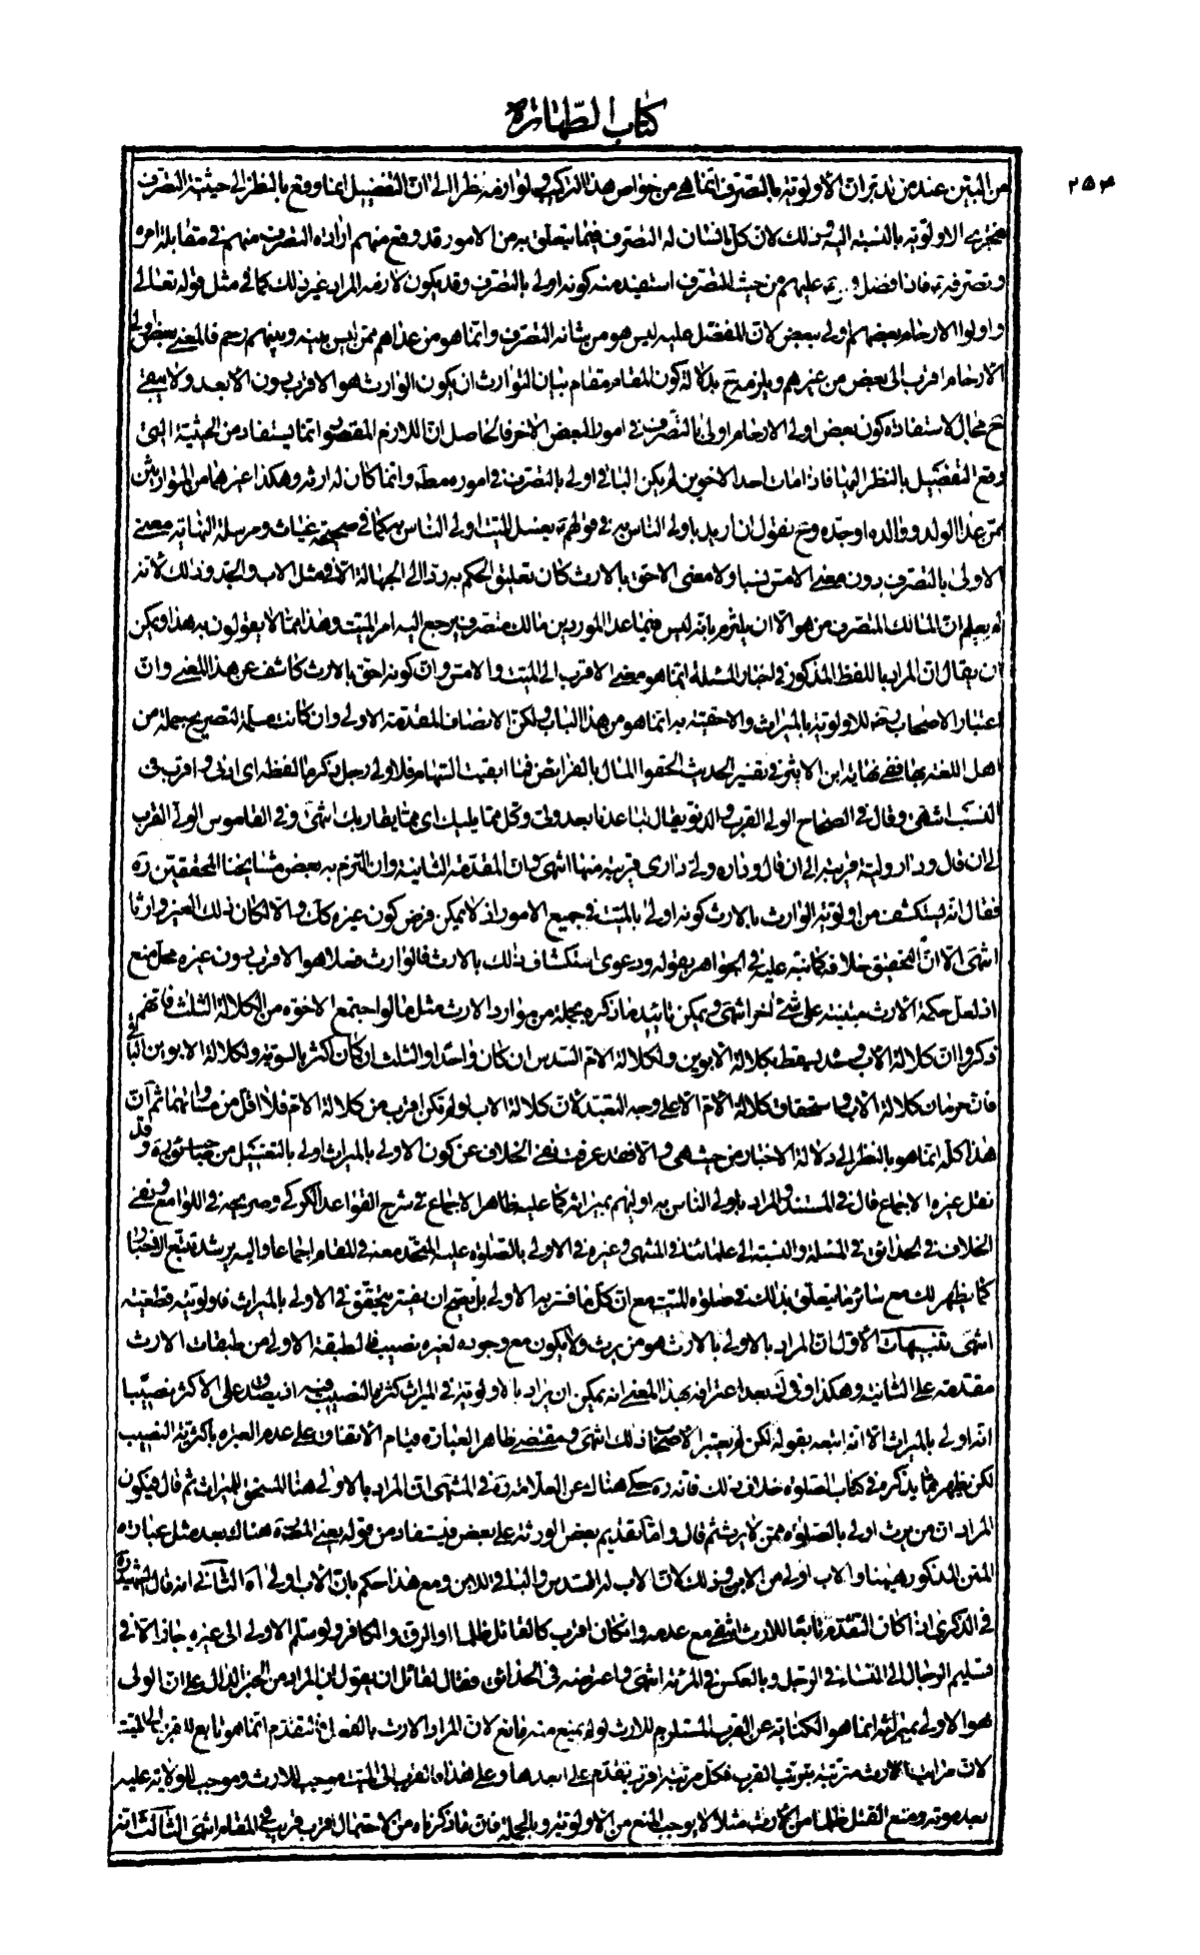 كتاب الطهارة
٢٥٤
من البين عند من تدبر ان الاولوية بالتصرف انما هي من خواص هذا التركيب ولوازمه نظرا الى ان التفضيل انما وقع بالنظر الى حيثية التصرف
الاولوية بالنسبة اليه وذلك لان كل انسان له التصرف فيما يتعلق به من الامور قد وقع منهم ارادة التصرف منهم في مقابلة امره
وتصرفه فاذا افضل عليهم من حيث التصرف استفيد منه كونه اولى بالتصرف وقد يكون لازمه المراد غير ذلك كما في مثل قوله تعالى
واولوا الارحام بعضهم اولى ببعض لان المفضل عليه ليس هو من شانه التصرف وانما هو من عداهم ممن ليس بينه وبينهم رحم فالمعنى بعض اولى
الارحام اقرب الى بعض من غيرهم ويلزمه ح بدلالة كون المقام مقام بيان التوارث ان يكون الوارث هو الاقرب دون الابعد ولا يبقى
ح مجال لاستفادة كون بعض اولى الارحام اولى بالتصرف في امور البعض الاخر فالحاصل ان اللازم المقصود انما يستفاد من الحيثية التي
وقع التفضيل بالنظر اليها فاذا مات احد الاخوين لم يكن الباقي اولى بالتصرف في اموره مطلقا وانما كان له ارثه وهكذا غيرهما من المتوارثين
ممن عدا الولد ووالده او جده وح نقول ان اريد باولى الناس به في قولهم يغسل الميت اولى الناس به كما في صحيحة غياث ومرسلة النهاية معنى
الاولى بالتصرف دون معنى الامس نسبا ولا معنى الاحق بالارث كان تعليق الحكم به ردا الى الجهالة الا في مثل الاب والجد وذلك لانه
لم يعلم ان المالك المتصرف من هو الا ان يلتزم بانه ليس فيما عدا الموردين مالك متصرف يرجع اليه امر الميت وهذا مما لا يقولون به هذا ويمكن
ان يقال ان المراد باللفظ المذكور في اخبار المسئلة انما هو معنى الاقرب الى الميت والامس وان كونه احق بالارث كاشف عن هذا المعنى وان
اعتبار الاصحاب للاولوية بالميراث والاحقية به انما هو من هذا الباب ولكن الانصاف المقدمة الاولى وان كانت مسلمة لتصريح جملة من
اهل اللغة بها ففي نهاية ابن الاثير في تفسير الحديث الحقوا المال بالفرائض فما ابقت السهام فلاولى رجل ذكر ما لفظه اى ادنى واقرب في
النسب انتهى وقال في الصحاح الولي القرب والدنو يقال تباعدنا بعد ولي وكل مما يليك اى مما يقاربك انتهى وفي القاموس الولي القرب
الى ان قال ودار ولية قريبة الى ان قال وداره ولي داري قريبة منها انتهى لكن المقدمة الثانية وان التزم به بعض مشايخنا المحققين ره
فقال انه يستكشف من اولوية الوارث بالارث كونه اولى بالميت في جميع الامور اذ لا يمكن فرض كون غيره كك والا لكان ذلك الغير وارثا
انتهى الا ان التحقيق خلافه كما نبه عليه في الجواهر بقوله ودعوى استكشاف ذلك بالارث فالوارث فعلا هو الاقرب دون غيره محل منع
اذ لعل حكمة الارث مبنية على شيء اخر انتهى ويمكن تاييد ما ذكره بجملة من موارد الارث مثل ما لو اجتمع الاخوة من الكلالة الثلث فانهم
ذكروا ان كلالة الاب وحده يسقط بكلالة الابوين ولكلالة الام السدس ان كان واحدا والثلث ان كان اكثر بالسوية ولكلالة الابوين الباقي
فان حرمان كلالة الاب واستحقاق كلالة الام الا على وجه التعبد لان كلالة الاب لو لم تكن اقرب من كلالة الام فلا اقل من مساواتهما ثم ان
هذا كله انما هو بالنظر الى دلالة الاخبار من حيث هي والا فقد عرفت نفى الخلاف عن كون الاولى بالميراث اولى بالتغسيل من وقد
نقل غيره الاجماع قال في المستند والمراد باولى الناس به اوليهم بميراثه كما عليه ظاهر الاجماع في شرح القواعد للكركي وصريحه في اللوامع ونفى
الخلاف في الحدائق في المسئلة والنسبة الى علمائنا في المنتهى وغيره في الاولى بالصلوة عليه المتحد معه في المقام اجماعا واليه يرشد تتبع الاخبار
كما يظهر لك مع سائر ما يتعلق بذلك في صلوة الميت مع ان كل ما فسر به الاولى بل يصح ان يفسر يتحقق في الاولى بالميراث فاولويته قطعية
انتهى تنبيهات الاول ان المراد بالاولى بالارث هو من يرث ولا يكون مع وجوده لغيره نصيب فالطبقة الاولى من طبقات الارث
مقدمة على الثانية وهكذا وفي ك بعد اعترافه بهذا المعنى انه يمكن ان يراد بالاولوية في الميراث كثرة النصيب فيه اذ يصدق على الاكثر نصيبا
انه اولى بالميراث الا انه اتبعه بقوله لكن لم يعتبر الاصحاب ذلك انتهى ومقتضى ظاهر العبارة قيام الاتفاق على عدم العبرة باكثرية النصيب
لكن يظهر مما يذكره في كتاب الصلوة خلاف ذلك فانه ره حكى هناك عن العلامة ره في المنتهى ان المراد بالاولى هنا المستحق للميراث ثم قال فيكون
المراد ان من يرث اولى بالصلوة ممن لا يرث ثم قال واما تقديم بعض الورثة على بعض فيستفاد من قوله يعنى المحقق هناك بعد مثل عبارة
المتن المذكور هيهنا والاب اولى من الابن وذلك لان الاب له السدس والباقي للابن ومع هذا حكم بان الاب اولى اه الثاني انه قال الشهيد ره
في الذكرى اذا كان التقدم تابعا للارث انتفى مع عدمه وان كان اقرب كالقاتل ظلما او الرق والكافر ولو سلم الاولى الى غيره جاز الا في
تسليم الرجال الى النساء في الرجل وبالعكس في المرئة انتهى واعترضه في الحدائق فقال لقائل ان يقول ان المراد من الخبر الدال على ان الولي
هو الاولى بميراثه انما هو الكناية عن القرب المستلزم للارث لو لم يمنع منه مانع لان المراد الارث بالفعل فالتقدم انما هو تابع للقرب الى الميت
لان مراتب الارث مرتبة بترتب القرب فكل مرتبة اقرب يقدم على ابعدها وعلى هذا فالقرب الى الميت موجب للارث وموجب للولاية عليه
بعد موته ومنع القتل ظلما من الارث مثلا لا يوجب المنع من الاولوية وبالجملة فان ما ذكرناه من الاحتمال اقرب قريب في المقام انتهى الثالث انه